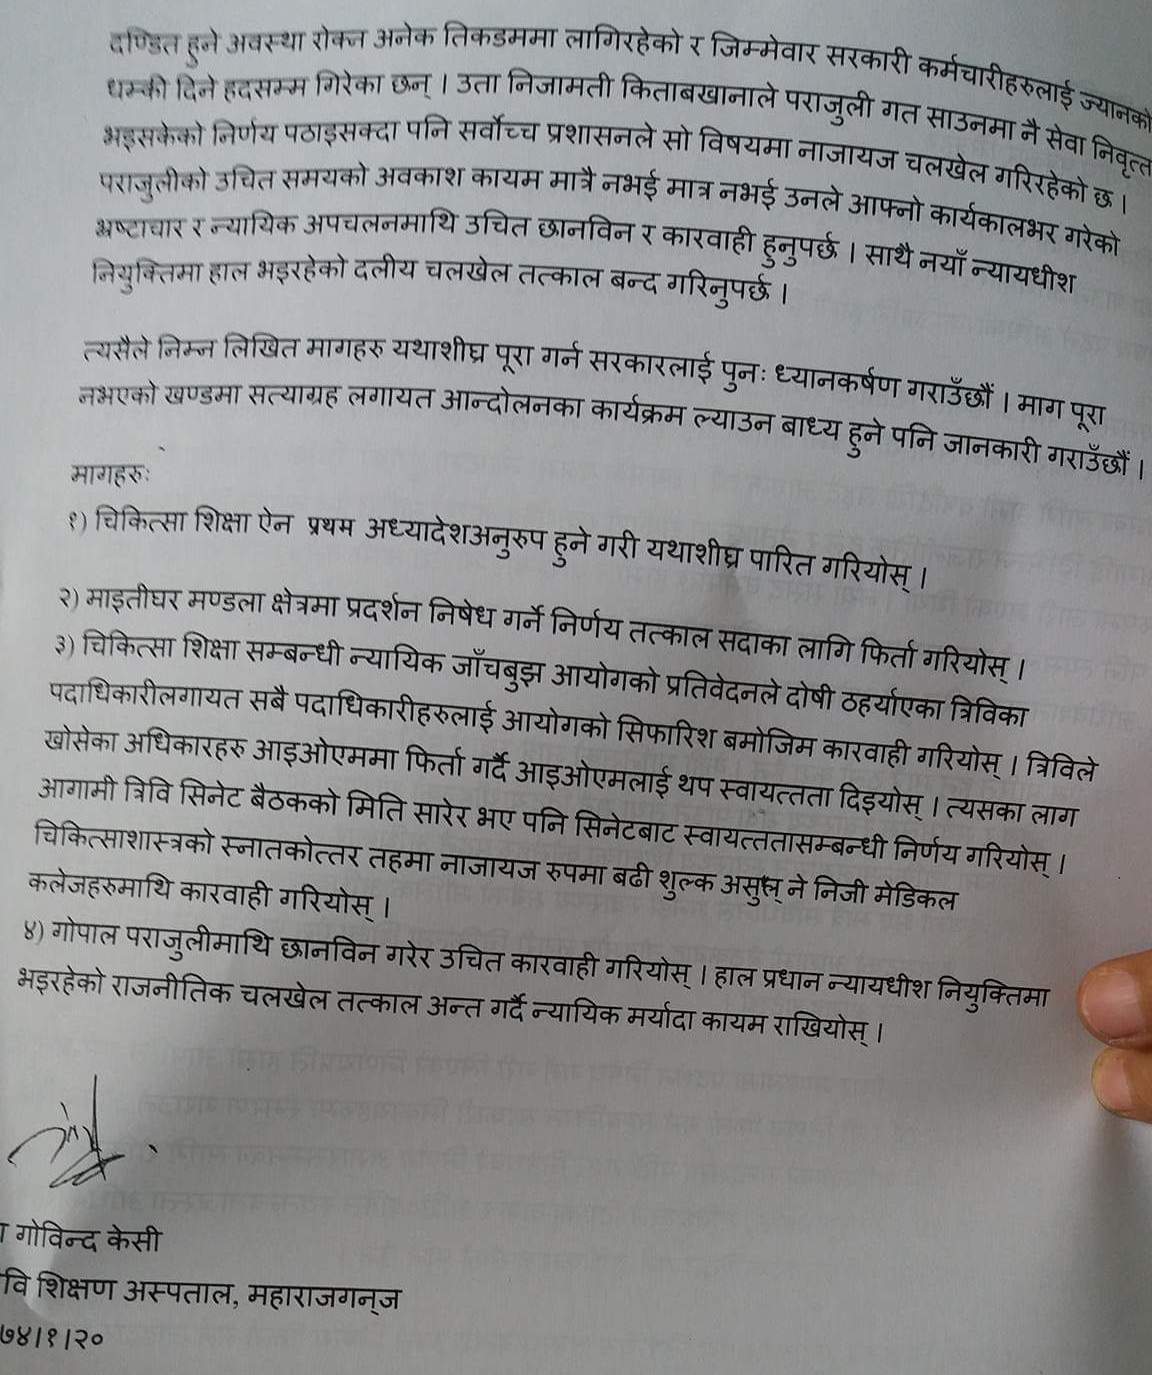 दण्डित हुने अवस्था रोक्न अनेक तिकडममा लागिरहेको र जिम्मेवार सरकारी कर्मचारीहरुलाई ज्यानको
धम्की दिने हदसम्म गिरेका छन् । उता निजामती किताबखानाले पराजुली गत साउनमा नै सेवा निवृत्त
भइसकेको निर्णय पठाइसक्दा पनि सर्वोच्च प्रशासनले सो विषयमा नाजायज चलखेल गरिरहेको छ ।
पराजुलीको उचित समयको अवकाश कायम मात्रै नभई मात्र नभई उनले आफ्नो कार्यकालभर गरेको
भ्रष्टाचार र न्यायिक अपचलनमाथि उचित छानविन र कारवाही हुनुपर्छ । साथै नयाँ न्यायधीश
नियुक्तिमा हाल भइरहेको दलीय चलखेल तत्काल बन्द गरिनुपर्छ ।
त्यसैले निम्न लिखित मागहरु यथाशीघ्र पूरा गर्न सरकारलाई पुनः ध्यानकर्षण गराउँछौं । माग पूरा
नभएको खण्डमा सत्याग्रह लगायत आन्दोलनका कार्यक्रम ल्याउन बाध्य हुने पनि जानकारी गराउँछौं ।
मागहरुः
१) चिकित्सा शिक्षा ऐन प्रथम अध्यादेशअनुरुप हुने गरी यथाशीघ्र पारित गरियोस् ।
२) माइतीघर मण्डला क्षेत्रमा प्रदर्शन निषेध गर्ने निर्णय तत्काल सदाका लागि फिर्ता गरियोस् ।
३) चिकित्सा शिक्षा सम्बन्धी न्यायिक जाँचबुझ आयोगको प्रतिवेदनले दोषी ठहर्याएका त्रिविका
पदाधिकारीलगायत सबै पदाधिकारीहरुलाई आयोगको सिफारिश बमोजिम कारवाही गरियोस् । त्रिविले
खोसेका अधिकारहरु आइओएममा फिर्ता गर्दै आइओएमलाई थप स्वायत्तता दिइयोस् । त्यसका लाग
आगामी त्रिवि सिनेट बैठकको मिति सारेर भए पनि सिनेटबाट स्वायत्ततासम्बन्धी निर्णय गरियोस् ।
चिकित्साशास्त्रको स्नातकोत्तर तहमा नाजायज रुपमा बढी शुल्क ने निजी मेडिकल
कलेजहरुमाथि कारवाही गरियोस् ।
४) गोपाल पराजुलीमाथि छानविन गरेर उचित कारवाही गरियोस् । हाल प्रधान न्यायधीश नियुक्तिमा
भइरहेको राजनीतिक चलखेल तत्काल अन्त गर्दै न्यायिक मर्यादा कायम राखियोस् ।
गोविन्द केसी
वि शिक्षण अस्पताल, महाराजगन्ज
७४।१।२०